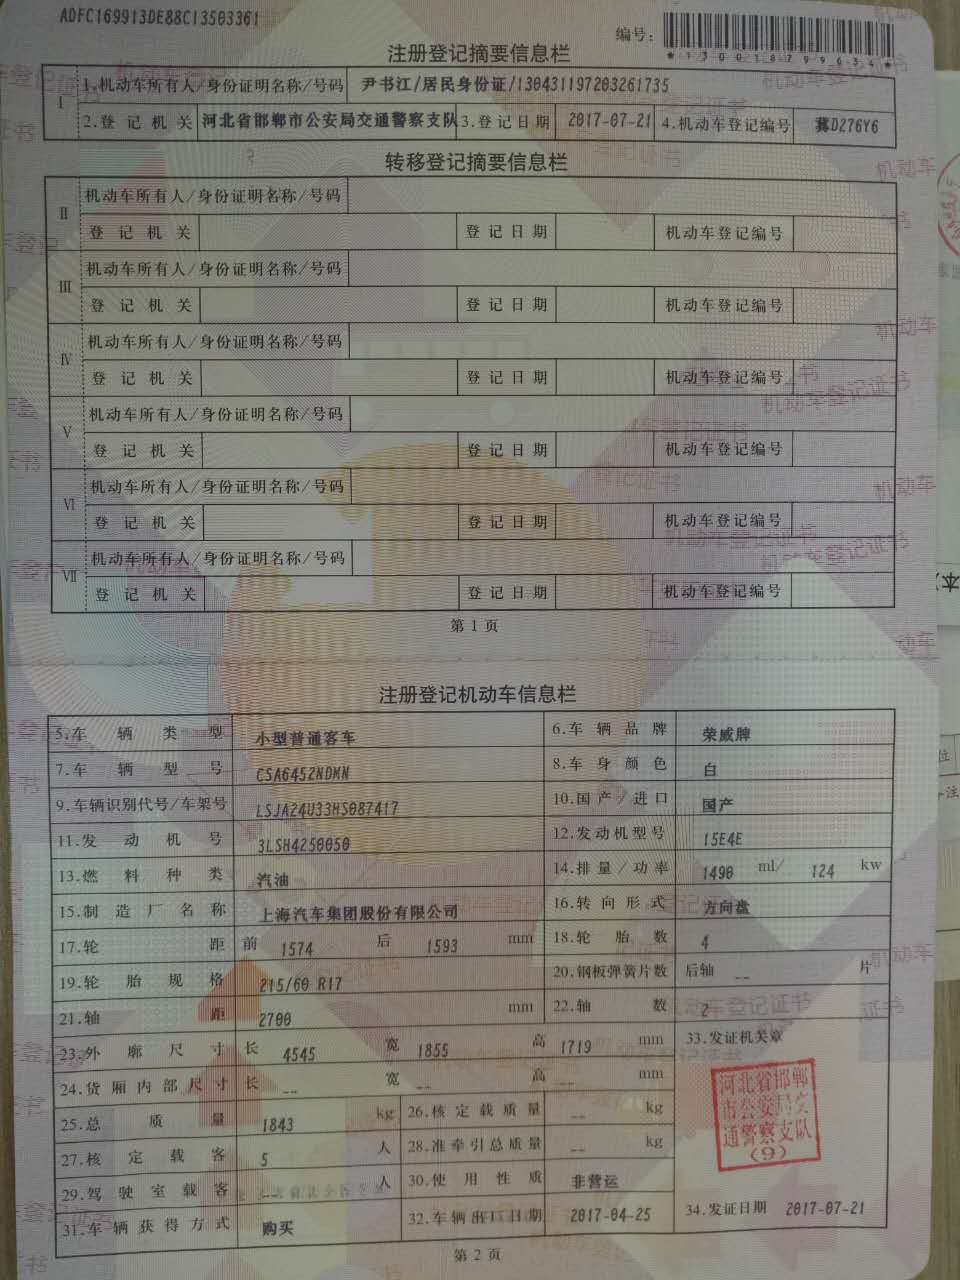 ADFC169913DE88C13503361
注册登记摘要信息栏
编号:
*130018799634*
I
1.机动车所有人/身份证明名称/号码 尹书江/居民身份证/130431197203261735
2.登记机关 河北省邯郸市公安局交通警察支队 3.登记日期 2017-07-21 4.机动车登记编号 冀D276Y6
转移登记摘要信息栏
II
机动车所有人/身份证明名称/号码
登记机关 登记日期 机动车登记编号
III
机动车所有人/身份证明名称/号码
登记机关 登记日期 机动车登记编号
IV
机动车所有人/身份证明名称/号码
登记机关 登记日期 机动车登记编号
V
机动车所有人/身份证明名称/号码
登记机关 登记日期 机动车登记编号
VI
机动车所有人/身份证明名称/号码
登记机关 登记日期 机动车登记编号
VII
机动车所有人/身份证明名称/号码
登记机关 登记日期 机动车登记编号
第1页
注册登记机动车信息栏
5.车辆类型 小型普通客车 6.车辆品牌 荣威牌
7.车辆型号 CSA6452NDMN 8.车身颜色 白
9.车辆识别代号/车架号 LSJA24U33HS087417 10.国产/进口 国产
11.发动机号 3LSH4250050 12.发动机型号 15E4E
13.燃料种类 汽油 14.排量/功率 1490 ml/ 124 kw
15.制造厂名称 上海汽车集团股份有限公司 16.转向形式 方向盘
17.轮距 前 1574 后 1593 mm 18.轮胎数 4
19.轮胎规格 215/60 R17 20.钢板弹簧片数 后轴 -- 片
21.轴距 2700 mm 22.轴数 2
23.外廓尺寸 长 4545 宽 1855 高 1719 mm 33.发证机关章
24.货厢内部尺寸 长 -- 宽 -- 高 -- mm
河北省邯郸市公安局交通警察支队(9)
25.总质量 1843 kg 26.核定载质量 -- kg
27.核定载客 5 人 28.准牵引总质量 -- kg
29.驾驶室载客 -- 人 30.使用性质 非营运
31.车辆获得方式 购买 32.车辆出厂日期 2017-04-25 34.发证日期 2017-07-21
第2页